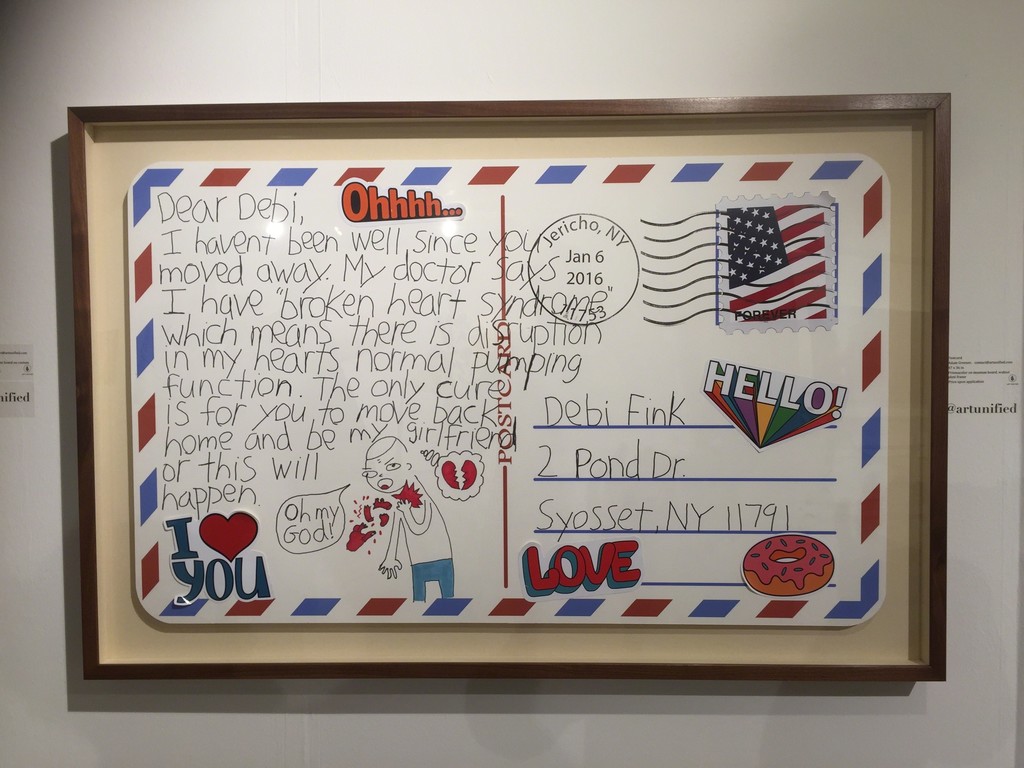 Dear Debi,
Ohhhh...
I havent been well, since you
moved away. My doctor says
I have "broken heart syndrome"
which means there is disruption
in my hearts normal pumping
function. The only cure
is for you to move back
home and be my girlfriend
or this will
happen.
Oh my
God!
I
YOU
POSTCARD
Jericho, NY
Jan 6
2016
11753
FOREVER
HELLO!
Debi Fink
2 Pond Dr.
Syosset, NY 11791
LOVE
@artunified
nified